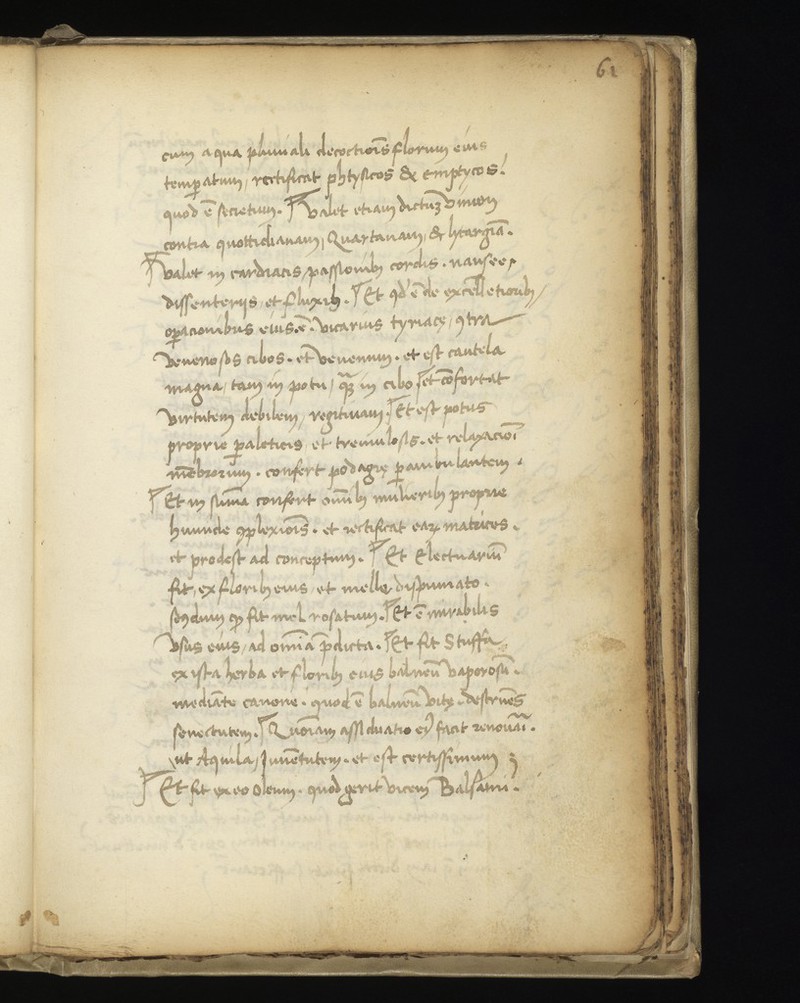 61
cum aqua pluuiali decoctiōis florum eius
temꝑatum, rectificat phtysicos & emptycos.
quod ē secretum. Valet etiam dictuꝫ Vinum
contra quottidianam, Quartanam, & litargiā.
Valet in cardiacis, passionibꝫ cordis. nauseę,
dissenteriis, et fluxibꝫ. Et qd ē de excellētioribꝫ
oꝑacionibus eius.ē. vicarius tyriacę, ꝯtra
venenosos cibos. et Venenum. et est cautela
magna, tam in potu, quā in cibo et cōfortat
virtutem debilem, regitiuam. Et est potus
proprie ꝑaleticis, et tremulosis. et relaxacioī
mēbrorum. confert podagrę ꝑambulantem.
Et in sūma confert omībꝫ mulieribꝫ proprie
humide ꝯplexiōis. et rectificat eaꝝ matrices.
et prodest ad conceptum. Et Electuariū
fit, ex floribꝫ eius, et melle dispumato.
scꝺum ꝙ fit mel rosatum. Et ē mirabilis
Vsus eius, ad omīa p̄dicta. Et fit Stuffa
ex ista herba et floribꝫ eius balneū Vaporosū.
mediāte canone. quod ē balneū Vitę. destruēs
senectutem. Quoīam assiduatio eiꝰ facit renouāi.
ut Aquila, Iuuētutem. et est certissimum ;
Et fit ex eo Oleum. quod gerit vicem Balsami.